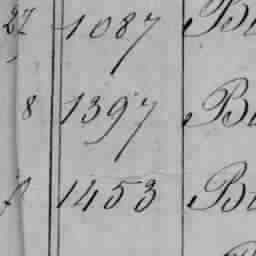 27 1087 B
8 1397 B
1453 B